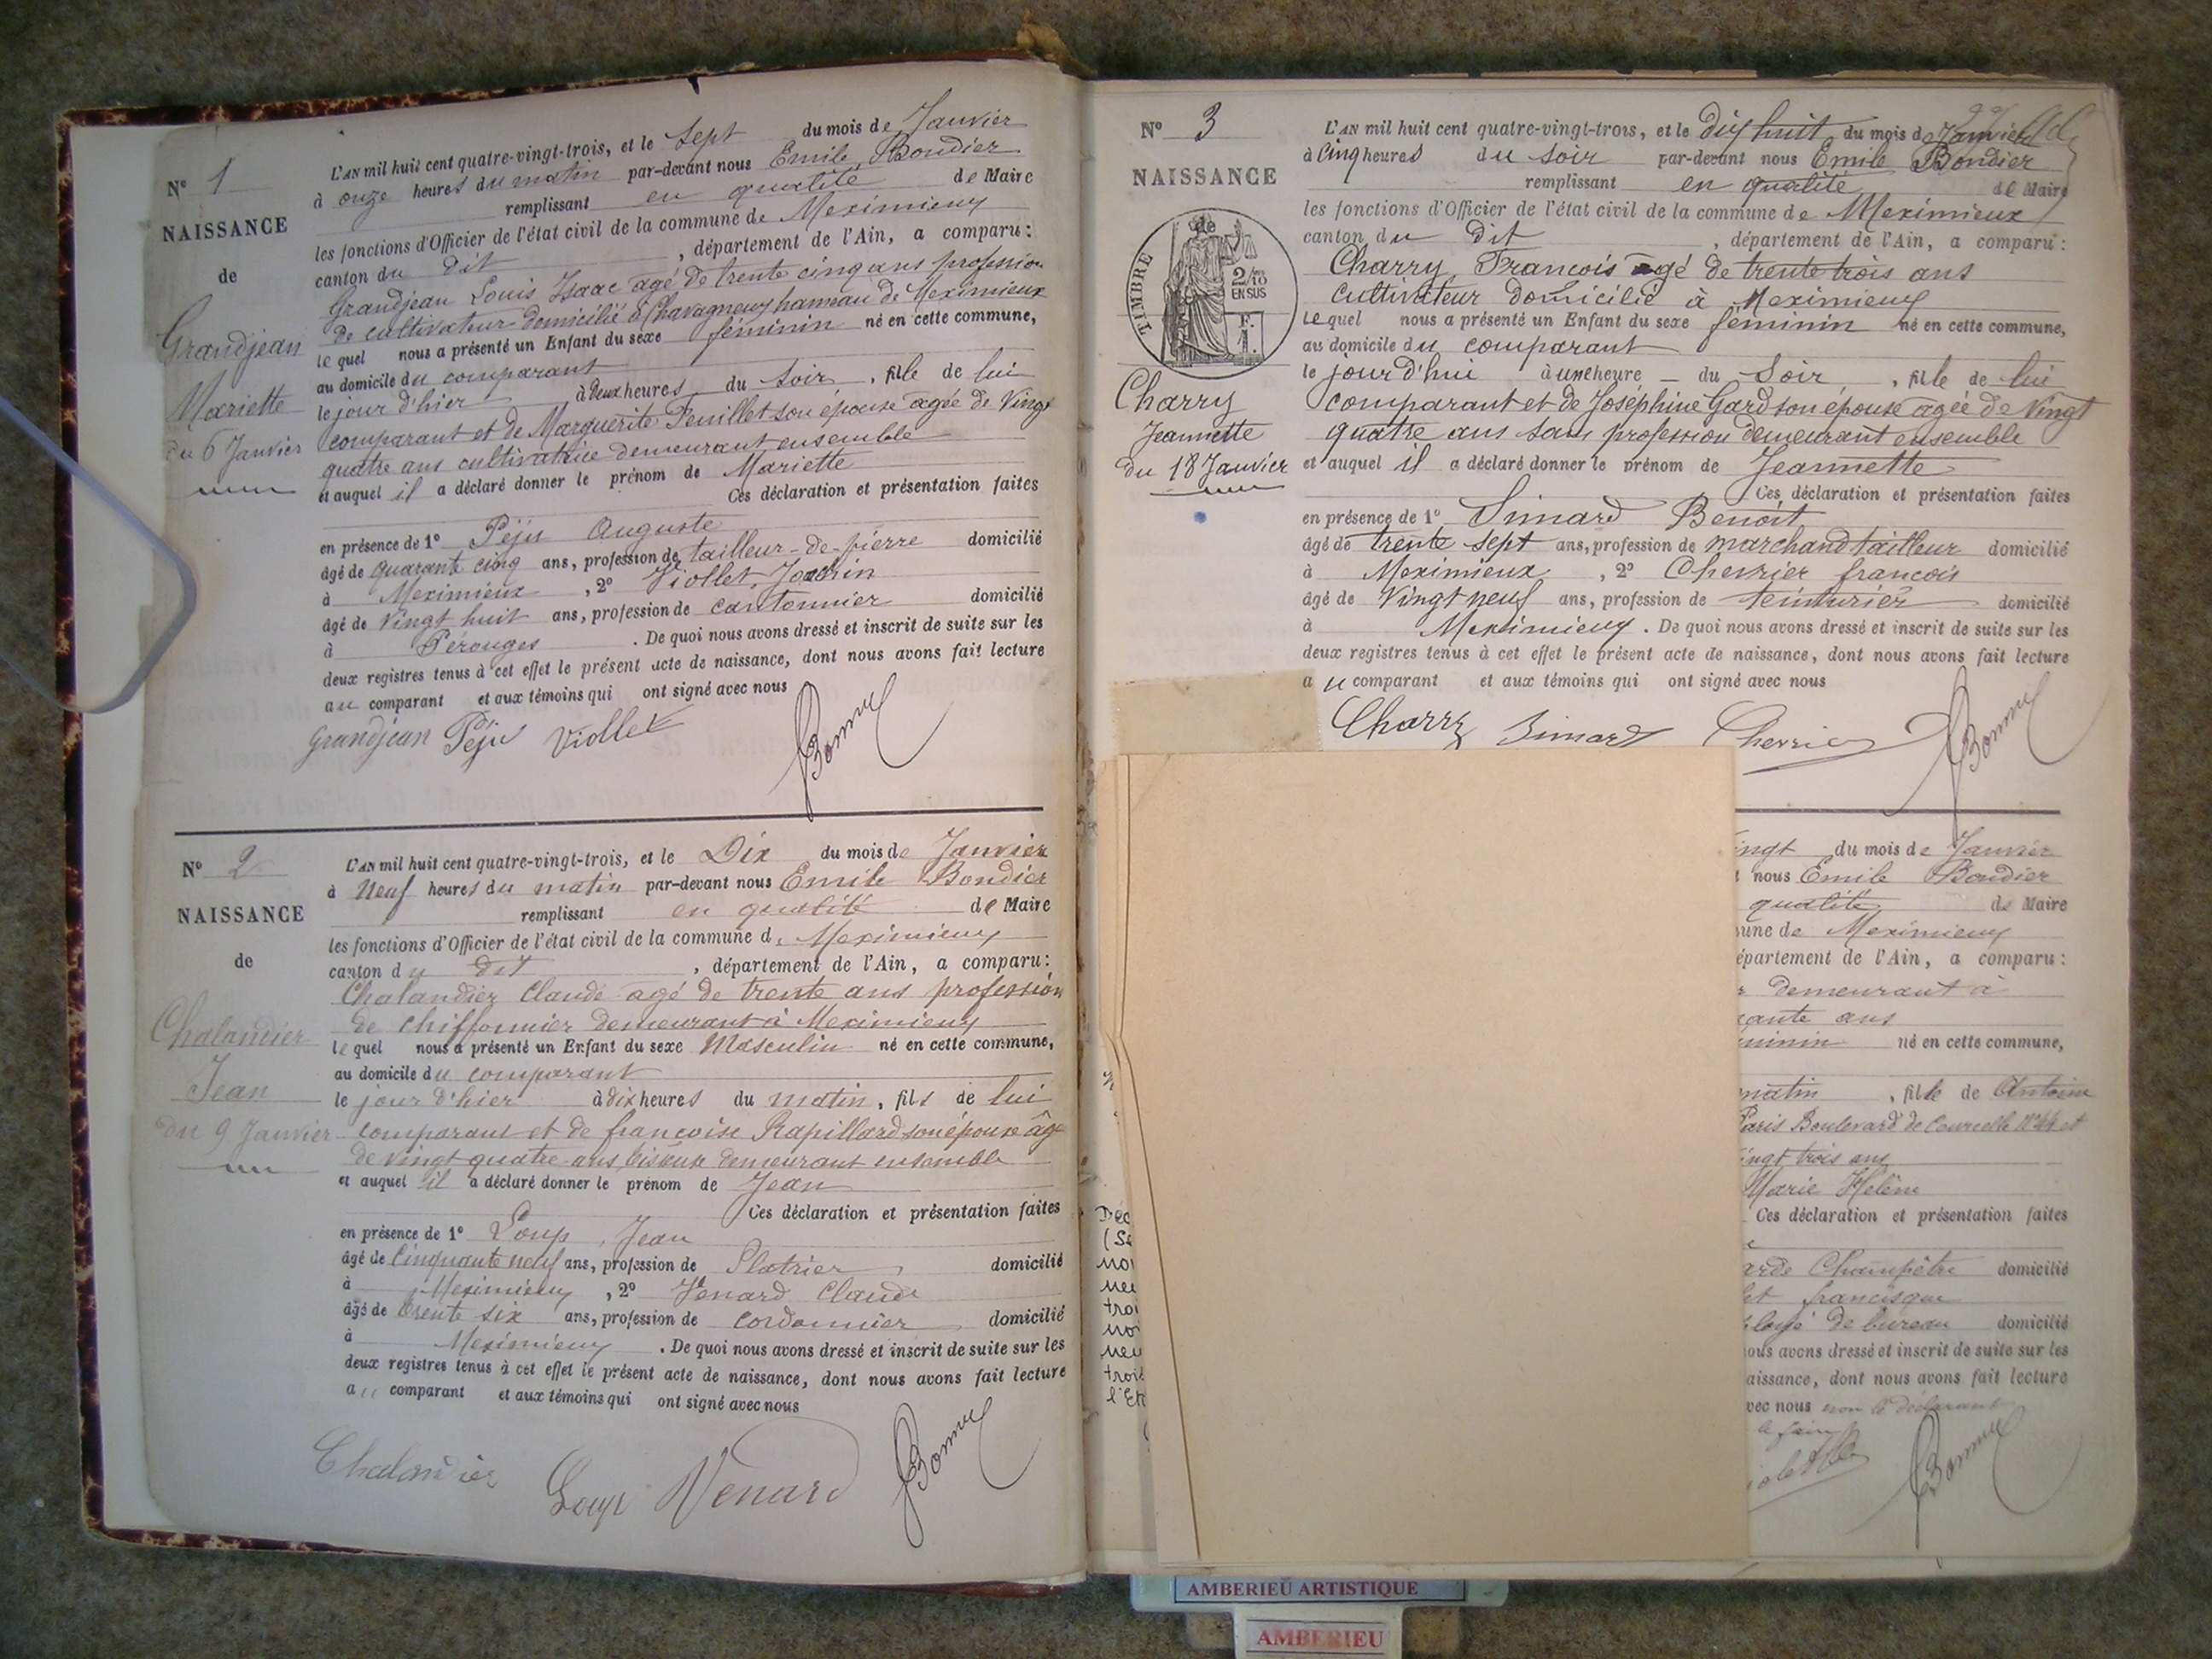 N° 1
NAISSANCE
de
Grandjean
Mariette
du 6 Janvier
L'AN mil huit cent quatre-vingt-trois, et le Sept du mois de Janvier
à onze heures du matin par-devant nous Emile Bondier
remplissant en qualité de Maire
les fonctions d'Officier de l'état civil de la commune de Meximieux
canton du dit , département de l'Ain, a comparu :
Grandjean Louis Isaac agé de trente cinq ans profession
de cultivateur domicilié à Chavagneux hameau de Meximieux
lequel nous a présenté un Enfant du sexe féminin né en cette commune,
au domicile du comparant
le jour d'hier à deux heures du Soir , fille de lui
comparant et de Marguerite Feuillet son épouse agée de Vingt
quatre ans cultivatrice demeurant ensemble
et auquel il a déclaré donner le prénom de Mariette
Ces déclaration et présentation faites
en présence de 1° Péju Auguste
âgé de quarante cinq ans, profession de tailleur-de-pierre domicilié
à Meximieux , 2° Viollet
âgé de Vingt huit ans, profession de cantonnier domicilié
à Pérouges . De quoi nous avons dressé et inscrit de suite sur les
deux registres tenus à cet effet le présent acte de naissance, dont nous avons fait lecture
au comparant et aux témoins qui ont signé avec nous
Grandjean Péju Viollet Bonnet
N° 2
NAISSANCE
de
Chalandier
Jean
du 9 Janvier
L'AN mil huit cent quatre-vingt-trois, et le Dix du mois de Janvier
à Neuf heures du matin par-devant nous Emile Bondier
remplissant en qualité de Maire
les fonctions d'Officier de l'état civil de la commune d Meximieux
canton du dit , département de l'Ain, a comparu :
Chalandier Claude agé de trente ans profession
de chiffonnier demeurant à Meximieux
lequel nous a présenté un Enfant du sexe Masculin né en cette commune,
au domicile du comparant
le jour d'hier à dix heures du matin, fils de lui
comparant et de françoise Rapillard son épouse âgé
de vingt quatre ans demeurant ensemble
et auquel il a déclaré donner le prénom de Jean
Ces déclaration et présentation faites
en présence de 1° Loup Jean
âgé de Cinquante neuf ans, profession de Platrier domicilié
à Meximieux , 2° Venard Claude
âgé de trente six ans, profession de cordonnier domicilié
à Meximieux . De quoi nous avons dressé et inscrit de suite sur les
deux registres tenus à cet effet le présent acte de naissance, dont nous avons fait lecture
au comparant et aux témoins qui ont signé avec nous
Chalandier Loup Venard Bonnet
N° 3
NAISSANCE
de
TIMBRE
2/10
EN SUS
F.
1.
Charry
Jeannette
du 18 Janvier
L'AN mil huit cent quatre-vingt-trois, et le dix huit du mois d Janvier
à Cinq heures du soir par-devant nous Emile Bondier
remplissant en qualité de Maire
les fonctions d'Officier de l'état civil de la commune de Meximieux
canton du dit , département de l'Ain, a comparu :
Charry François agé de trente trois ans
cultivateur domicilié à Meximieux
lequel nous a présenté un Enfant du sexe féminin né en cette commune,
au domicile du comparant
le jour d'hui à une heure du Soir , fille de lui
comparant et de Joséphine Gard son épouse agée de Vingt
quatre ans sans profession demeurant ensemble
et auquel il a déclaré donner le prénom de Jeannette
Ces déclaration et présentation faites
en présence de 1° Simard Benoit
âgé de trente sept ans, profession de marchand tailleur domicilié
à Meximieux , 2° Chevrier françois
âgé de Vingt neuf ans, profession de teinturier domicilié
à Meximieux . De quoi nous avons dressé et inscrit de suite sur les
deux registres tenus à cet effet le présent acte de naissance, dont nous avons fait lecture
au comparant et aux témoins qui ont signé avec nous
Charry Simard Chevrier Bonnet
ingt du mois de Janvier
nous Emile Bondier
qualité de Maire
une de Meximieux
épartement de l'Ain, a comparu :
demeurant à
ante ans
minin né en cette commune,
matin , fille de Antoine
Paris Boulevard de Courcelle N° 44 et
ingt trois ans
Marie Hélène
Ces déclaration et présentation faites
arde Champêtre domicilié
et francisque
loyé de bureau domicilié
ous avons dressé et inscrit de suite sur les
aissance, dont nous avons fait lecture
vec nous non le déclarant
Bonnet
Déc
(Se
no
neu
troi
noi
neu
trois
l'Et
AMBERIEU ARTISTIQUE
AMBERIEU